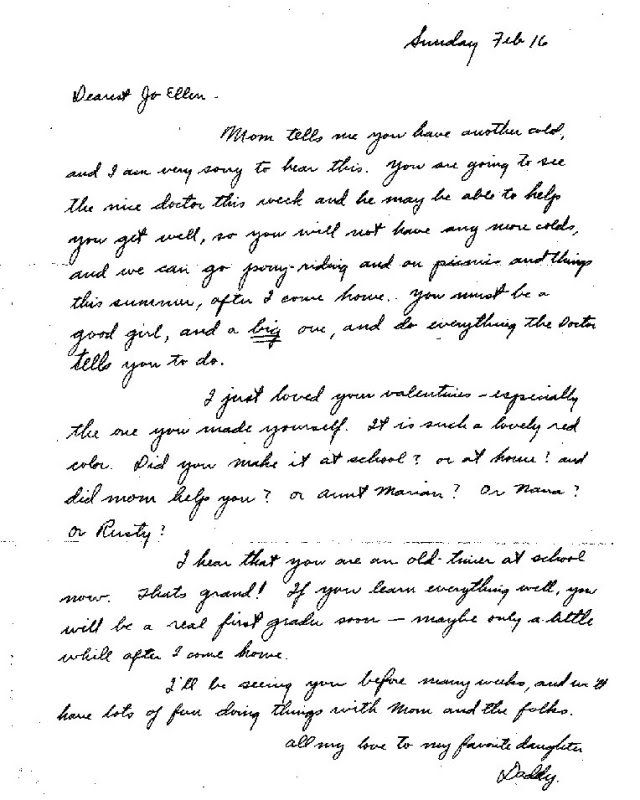 Sunday Feb 16
Dearest Jo Ellen -
Mom tells me you have another cold,
and I am very sorry to hear this. You are going to see
the nice doctor this week and he may be able to help
you get well, so you will not have any more colds,
and we can go pony-riding and on picnics and things
this summer, after I come home.. You must be a
good girl, and a big one, and do everything the Doctor
tells you to do.
I just loved your valentines - especially
the one you made yourself. It is such a lovely red
color. Did you make it at school? or at home? and
did mom help you? or aunt Marian? Or Nana?
or Rusty?
I hear that you are an old-timer at school
now. Thats grand! If you learn everything well, you
will be a real first grader soon - maybe only a little
while after I come home.
I'll be seeing you before many weeks, and we'll
have lots of fun doing things with Mom and the folks.
all my love to my favorite daughter
Daddy.